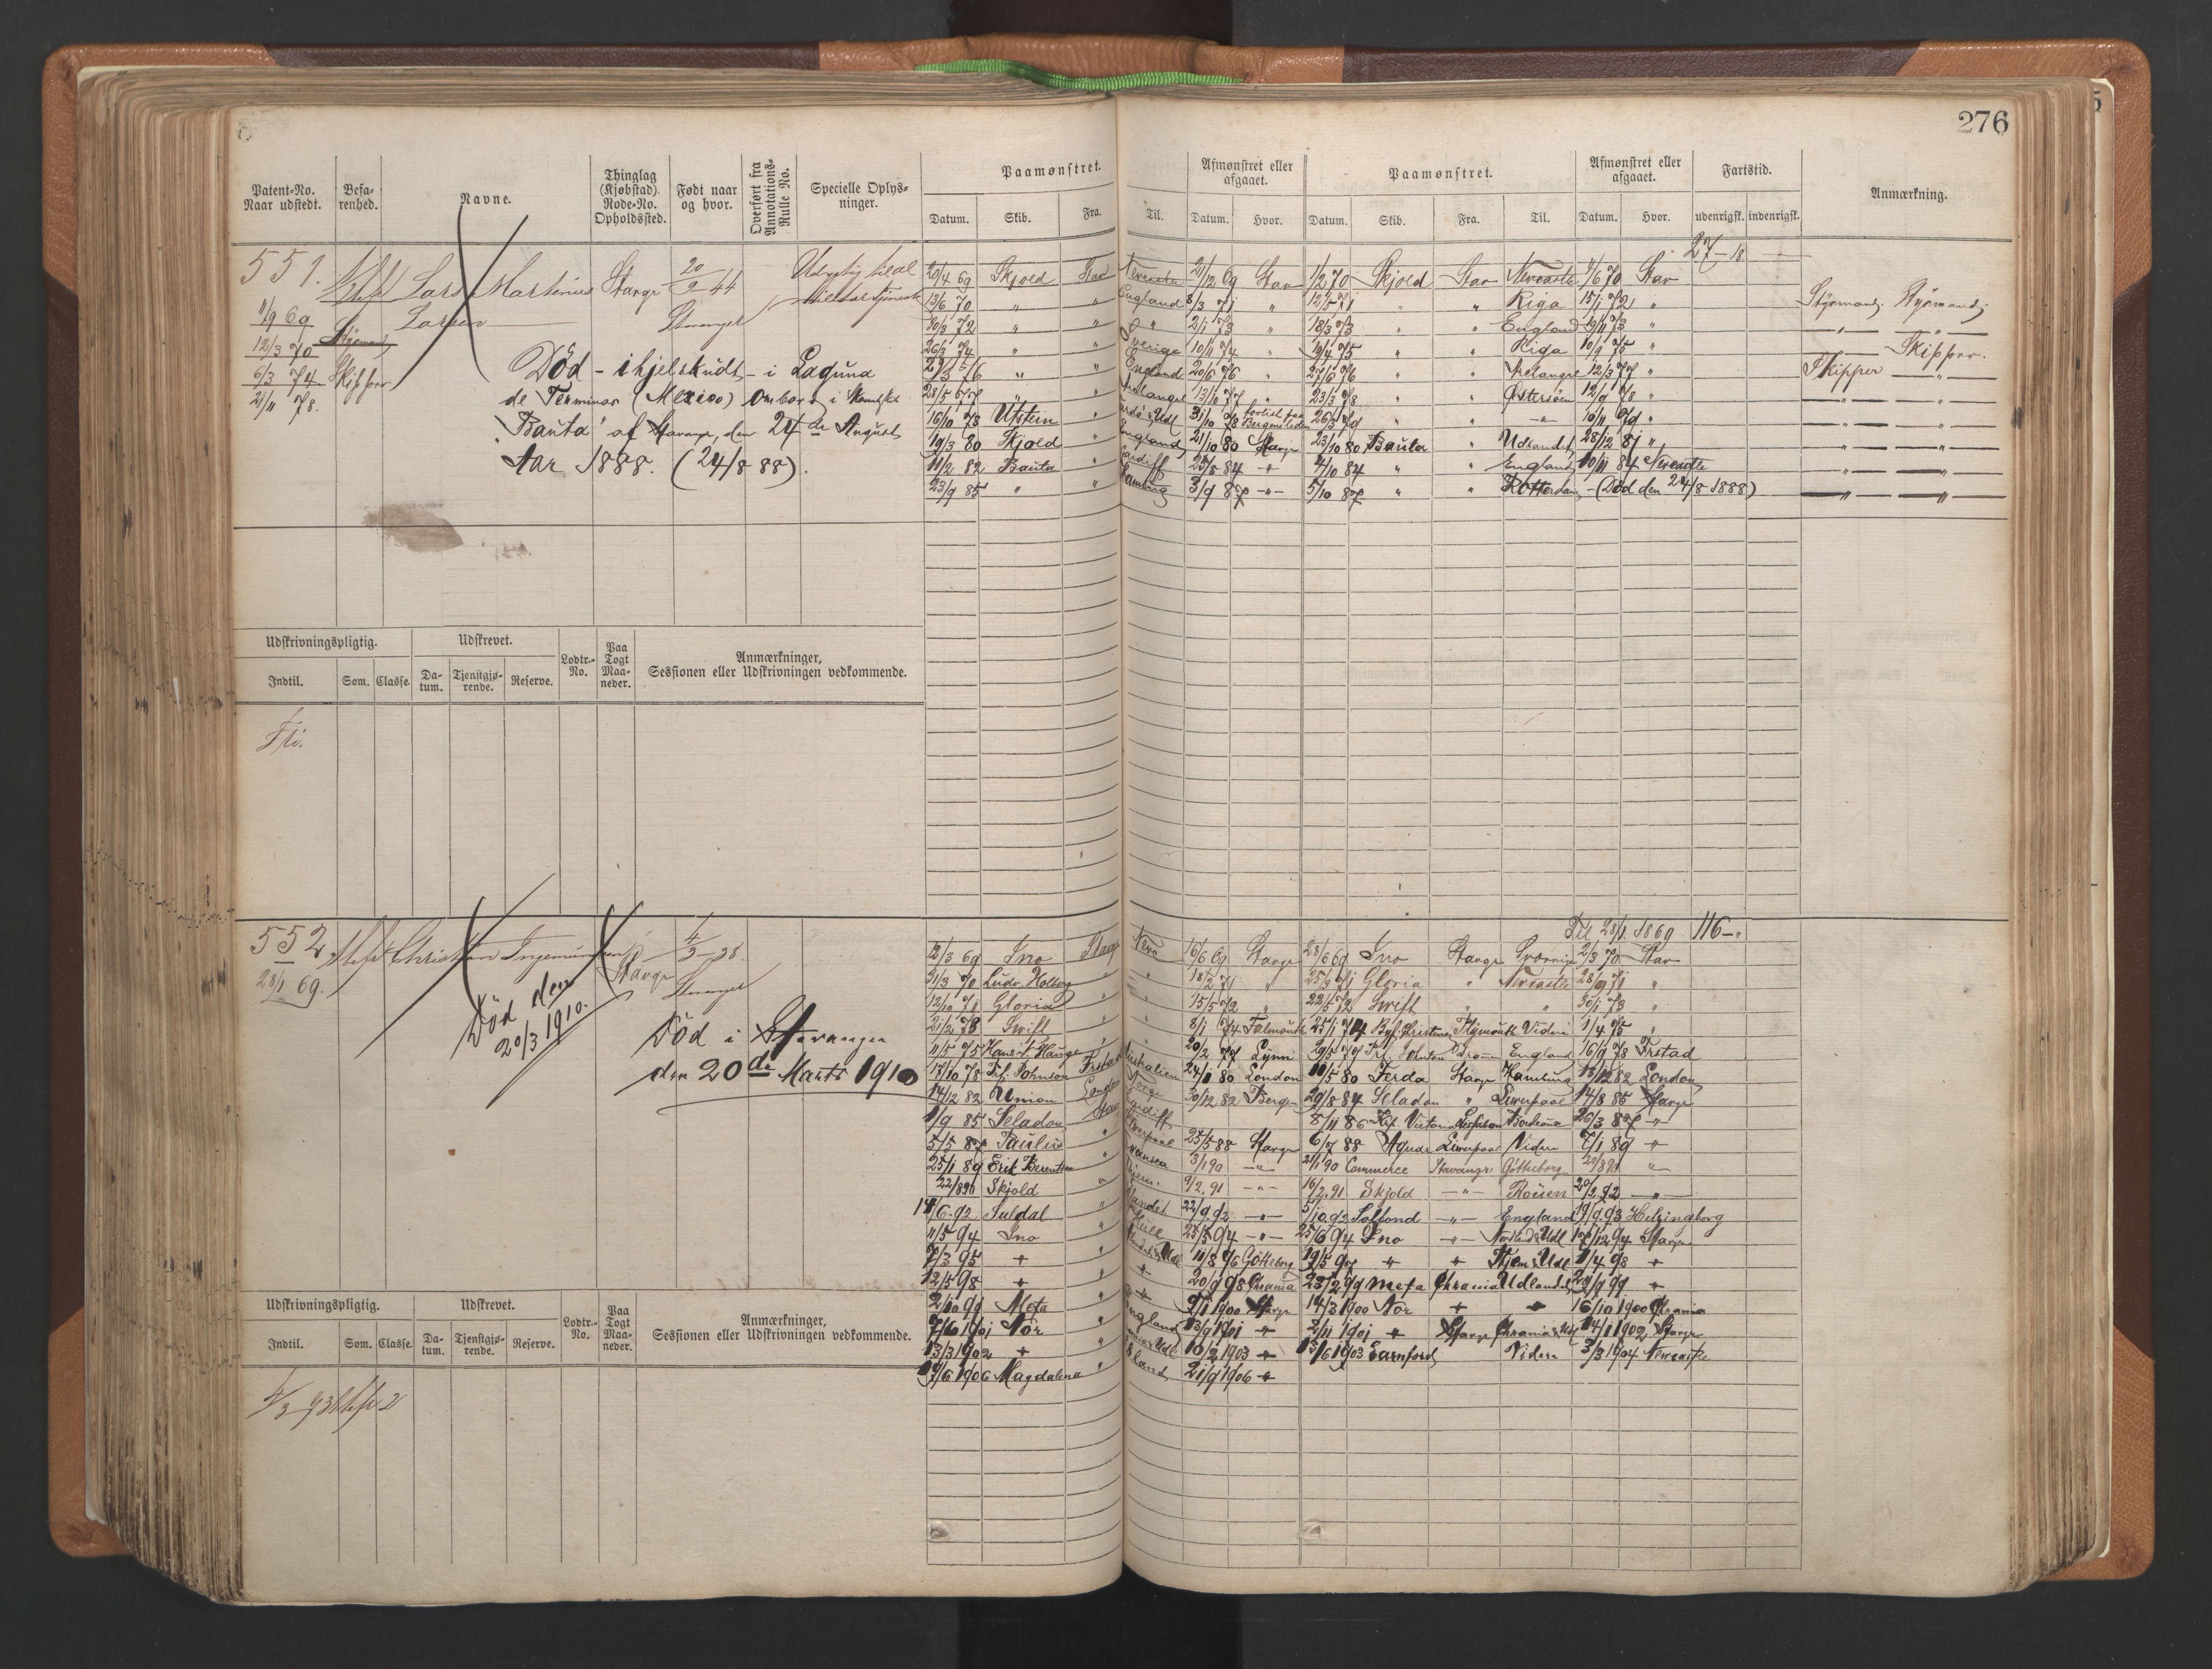 276
Patent-No. Naar udstedt. Befarenhed. Navne. Thinglag (Kjøbstad). Rode-No. Opholdssted. Født naar og hvor. Overført fra Annotations-Rulle No. Specielle Oplysninger. Paamønstret. Afmønstret eller afgaaet. Paamønstret. Afmønstret eller afgaaet. Fartstid. Anmærkning.
Datum. Skib. Fra. Til. Datum. Hvor. Datum. Skib. Fra. Til. Datum. Hvor. udenrigsk. indenrigsk.
27-18
551. Lars Martinius Larsen Stavgr 20/2 44 Stavanger
11/9 69
12/3 70 Styrmand
6/3 74 Skipper
21/11 78.
Død - ihjelskudt - i Laguna
de Terminos (Mexico) ombord i
"Bauta" af Stavanger, den 24de August
Aar 1888. (24/8 88).
20/4 69 Skjold Stav 21/12 69 Stav 1/2 70 Skjold Stav Newcastle 11/6 70 Stav
13/6 70 " " England 8/3 71 " 12/5 71 " " Riga 15/1 72 " Styrmand. Styrmand.
30/3 72 " " " 2/1 73 " 18/3 73 " " England 19/11 73 " — " — — " —
26/3 74 " " Sverige 10/11 74 " 19/4 75 " " Riga 10/9 75 " Skipper.
" " England 20/6 76 " 27/6 76 " " 12/3 77 " Skipper — " —
28/5 77 " " 13/10 77 " 23/3 78 " " Østersøen 12/9 78 " — " — — " —
16/10 78 Utstein " 31/10 78 26/3 79 " " — " — 10/11 79 " — " — — " —
19/3 80 Skjold " England 21/10 80 Stavgr 23/10 80 Bauta " Udlandet 28/12 81 " — " — — " —
11/2 82 Bauta " Cardiff 25/8 84 — " — 7/10 84 " " England 10/11 84 Newcastle — " — — " —
23/9 85 " " 3/9 87 — " — 5/10 87 " " Rotterdam — (Død den 24/8 1888) — " — — " —
Udskrivningspligtig. Udskrevet. Lodtr.-No. Paa Togt Maaneder. Anmærkninger, Sessionen eller Udskrivningen vedkommende.
Indtil. Som. Classe. Datum. Tjenstgjørende. Reserve.
552. Christian Stavgr 4/3 38. Stavanger
28/1 69.
Død den
20/3 1910.
Død i Stavanger
den 20de Marts 1910
Til 28/1. 1869 116-"
12/3 69 Ino Stavgr 16/6 69 Stavgr 28/6 69 Ino Stavgr 2/3 70 Stav
31/3 70 Ludv. Holberg " " 18/2 71 " 25/3 71 Gloria " Newcastle 28/9 71 "
12/10 71 Gloria " " 15/5 72 " 22/5 72 Swift " " 30/1 73 "
21/2 73 Swift " " 8/1 74 Falmouth 25/1 74 Plymouth Videre 1/4 75 "
11/5 75 Hans N. Hauge " 20/2 77 Lynn 29/5 77 England 16/9 78 Frstad
17/10 78 Johnson Frstad Australien 24/1 80 London 11/5 80 Ferda Stavgr Hamburg 13/12 82 London
14/12 82 Union London Norge 30/12 82 Bergen 29/8 84 Seladon " Liverpool 14/8 85 Stavgr
1/9 85 Seladon Stav Cardiff 5/11 86 Bordeaux 26/3 87 — " —
5/5 87 Paulus " Liverpool 25/5 88 Stavgr 6/7 88 Liverpool Videre 7/1 89 — " —
25/1 89 Erik Berentsen " Swansea 3/1 90 — " — 21/1 90 Commerce Stavanger Gøtheborg "
22/8 90 Skjold " 9/2.91 — " — 16/2.91 Skjold — " — Rouen 20/2 92 — " —
14/6.92 Suldal " 22/9 92 — " — 5/10.92 — " — England 19/9 93 Helsingborg
11/5 94 Ino " Hull 25/5 94 — " — 25/6 94 Ino — " — 17/12 94 Stavgr
7/3 95 " " 11/8 96 Gøtheborg 19/5 97 " " 1/4 98 "
12/5 98 " " " 20/9 98 Chrania 23/2 99 Mefa Chrania Udlandet 29/9 99 "
2/10 99 Mefa " " 9/1 1900 Stavgr 14/3 1900 Nor " " 16/10 1900 Chrania
7/6 1901 Nor " England 13/9 1901 " 2/11 1901 " Stavgr 14/1 1902 Stavgr
13/3 1902 " " 10/2 1903 " 13/6 1903 Earnford Videre 3/3 1904
19/6 1906 Magdalena " 21/9 1906 "
Udskrivningspligtig. Udskrevet. Lodtr.-No. Paa Togt Maaneder. Anmærkninger, Sessionen eller Udskrivningen vedkommende.
Indtil. Som. Classe. Datum. Tjenstgjørende. Reserve.